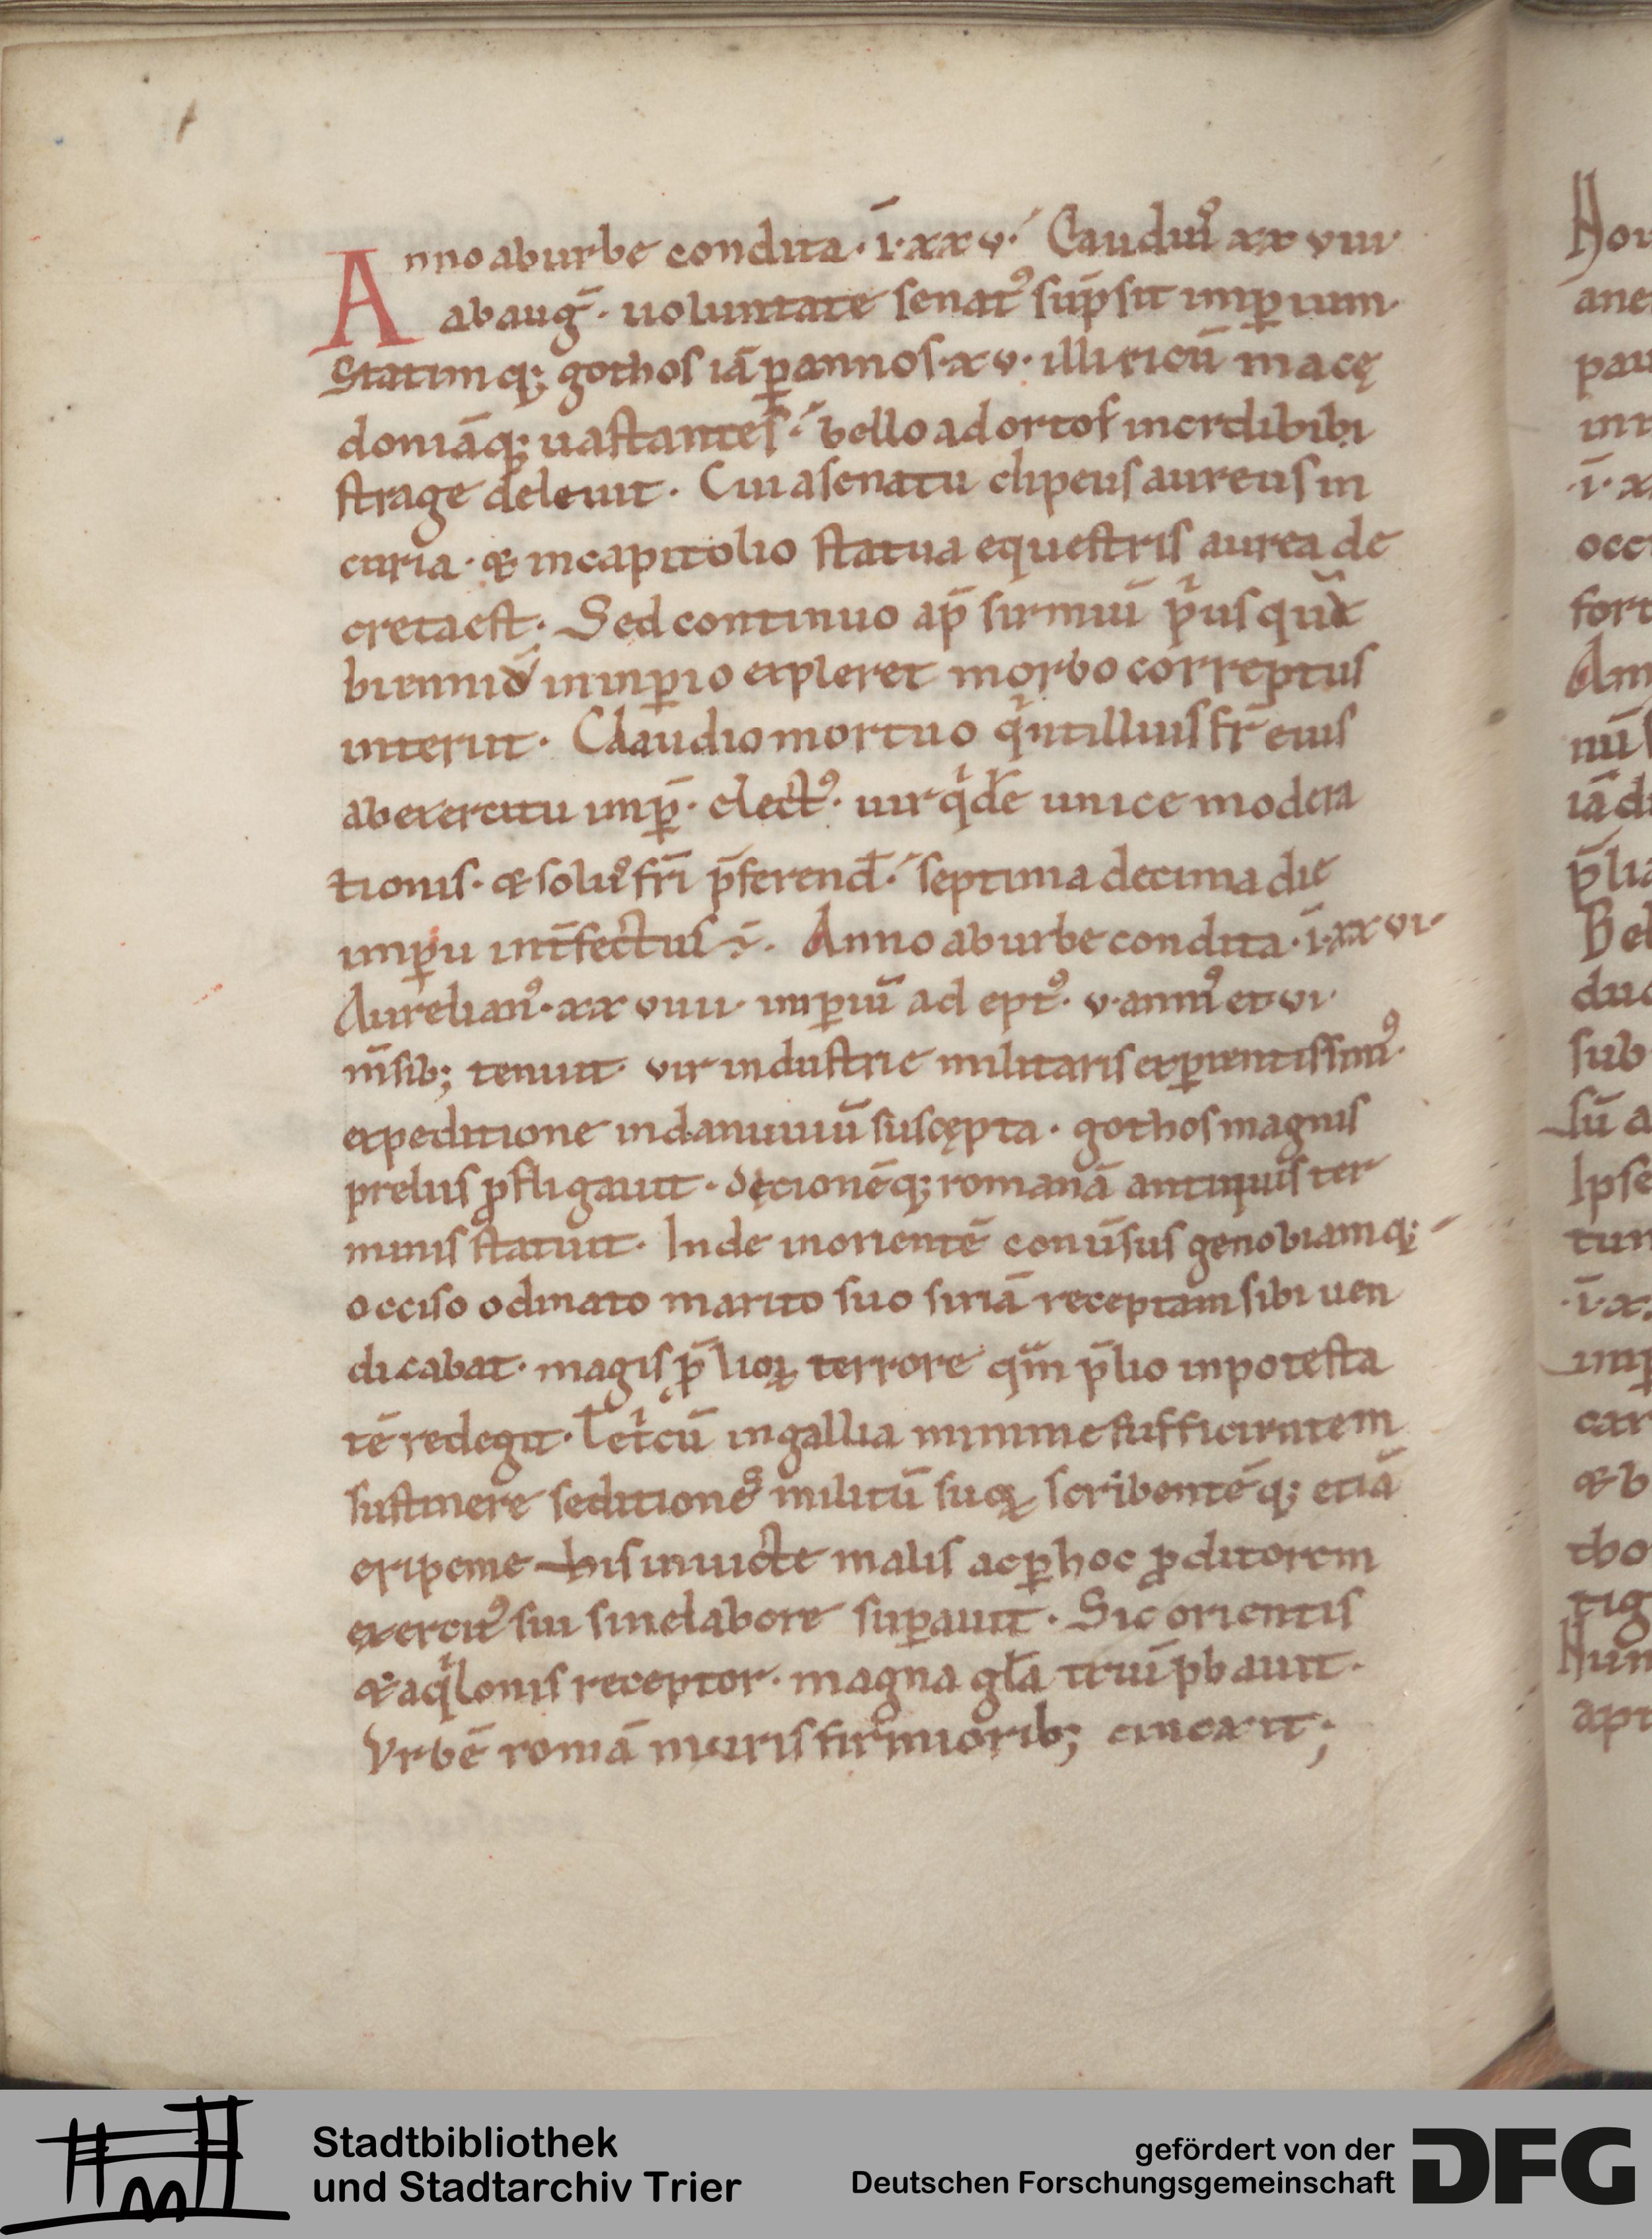 Anno ab urbe condita · ī · xx v · Caudiꝰ xx viii ·
ab auḡ · uoluntate senatꝰ sūpsit imꝑium ·
Statimq; gothos iā ꝑ annos · xv · illiricū macę
doniāq; uastantes · bello adortos incrdibibi
strage deleuit · Cui a senatu clipeus aureus in
curia · & in capitolio statua equestris aurea de
creta est · Sed continuo ap̄ sirmiū pͥus quā
biennio in inꝑio expleret morbo correptus
interiit · Claudio mortuo qͥntillius fr̄ eius
ab exercitu imꝑ · electꝰ · uir qͥdē unice modera
tionis · & solus fr̄i p̄ferend · septima decima die
imꝑii int̄fectus ē · Anno ab urbe condita · ī · xx vi ·
Aurelianꝰ · xx viiii · imꝑiū ad eptꝰ · v · annis et vi ·
m̄sib; tenuit · vir industrie militaris exꝑientissimꝰ ·
expeditione in danuuiū suscępta · gothos magnis
preliis ꝓfligauit · dęcionēq; romanā antiquis ter
minis statuit · Inde in orientē conūsus genobiamq;
occiso odinato marito suo siriā receptam sibi uen
dicabat · magis p̄lioꝝ terrore qm̄ p̄lio in potesta
tē redegit · Tetͥcū in gallia minime sufficientem
sustinere seditiones militū suoꝝ scribentēq; etiā
eripe me his inuicte malis ac ꝑ hoc ꝓditorem
exercitꝰ sui sine labore suꝑauit · Sic orientis
& aqͥlonis receptor · magna gl̄a triūpbauit ·
Vrbē romā muris firmiorib; cincxit ;
Stadtbibliothek
und Stadtarchiv Trier
gefördert von der
Deutschen Forschungsgemeinschaft
DFG